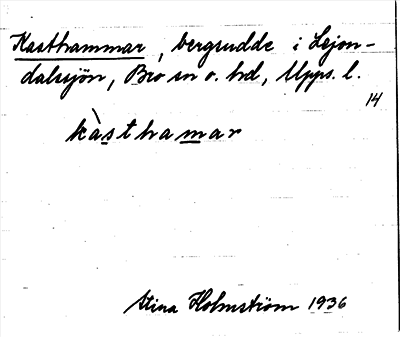 Kasthammar, bergsudde i Lejon-
dalssjön, Bro sn o. hd, Upps. l.
14
kàsthamar
Stina Holmström 1936